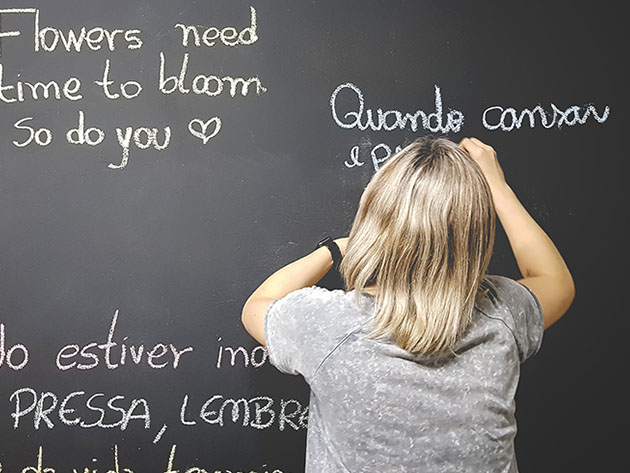 Flowers need
time to bloom
So do you
Quando cansar
e
estiver
PRESSA, LEMBRE
da vida